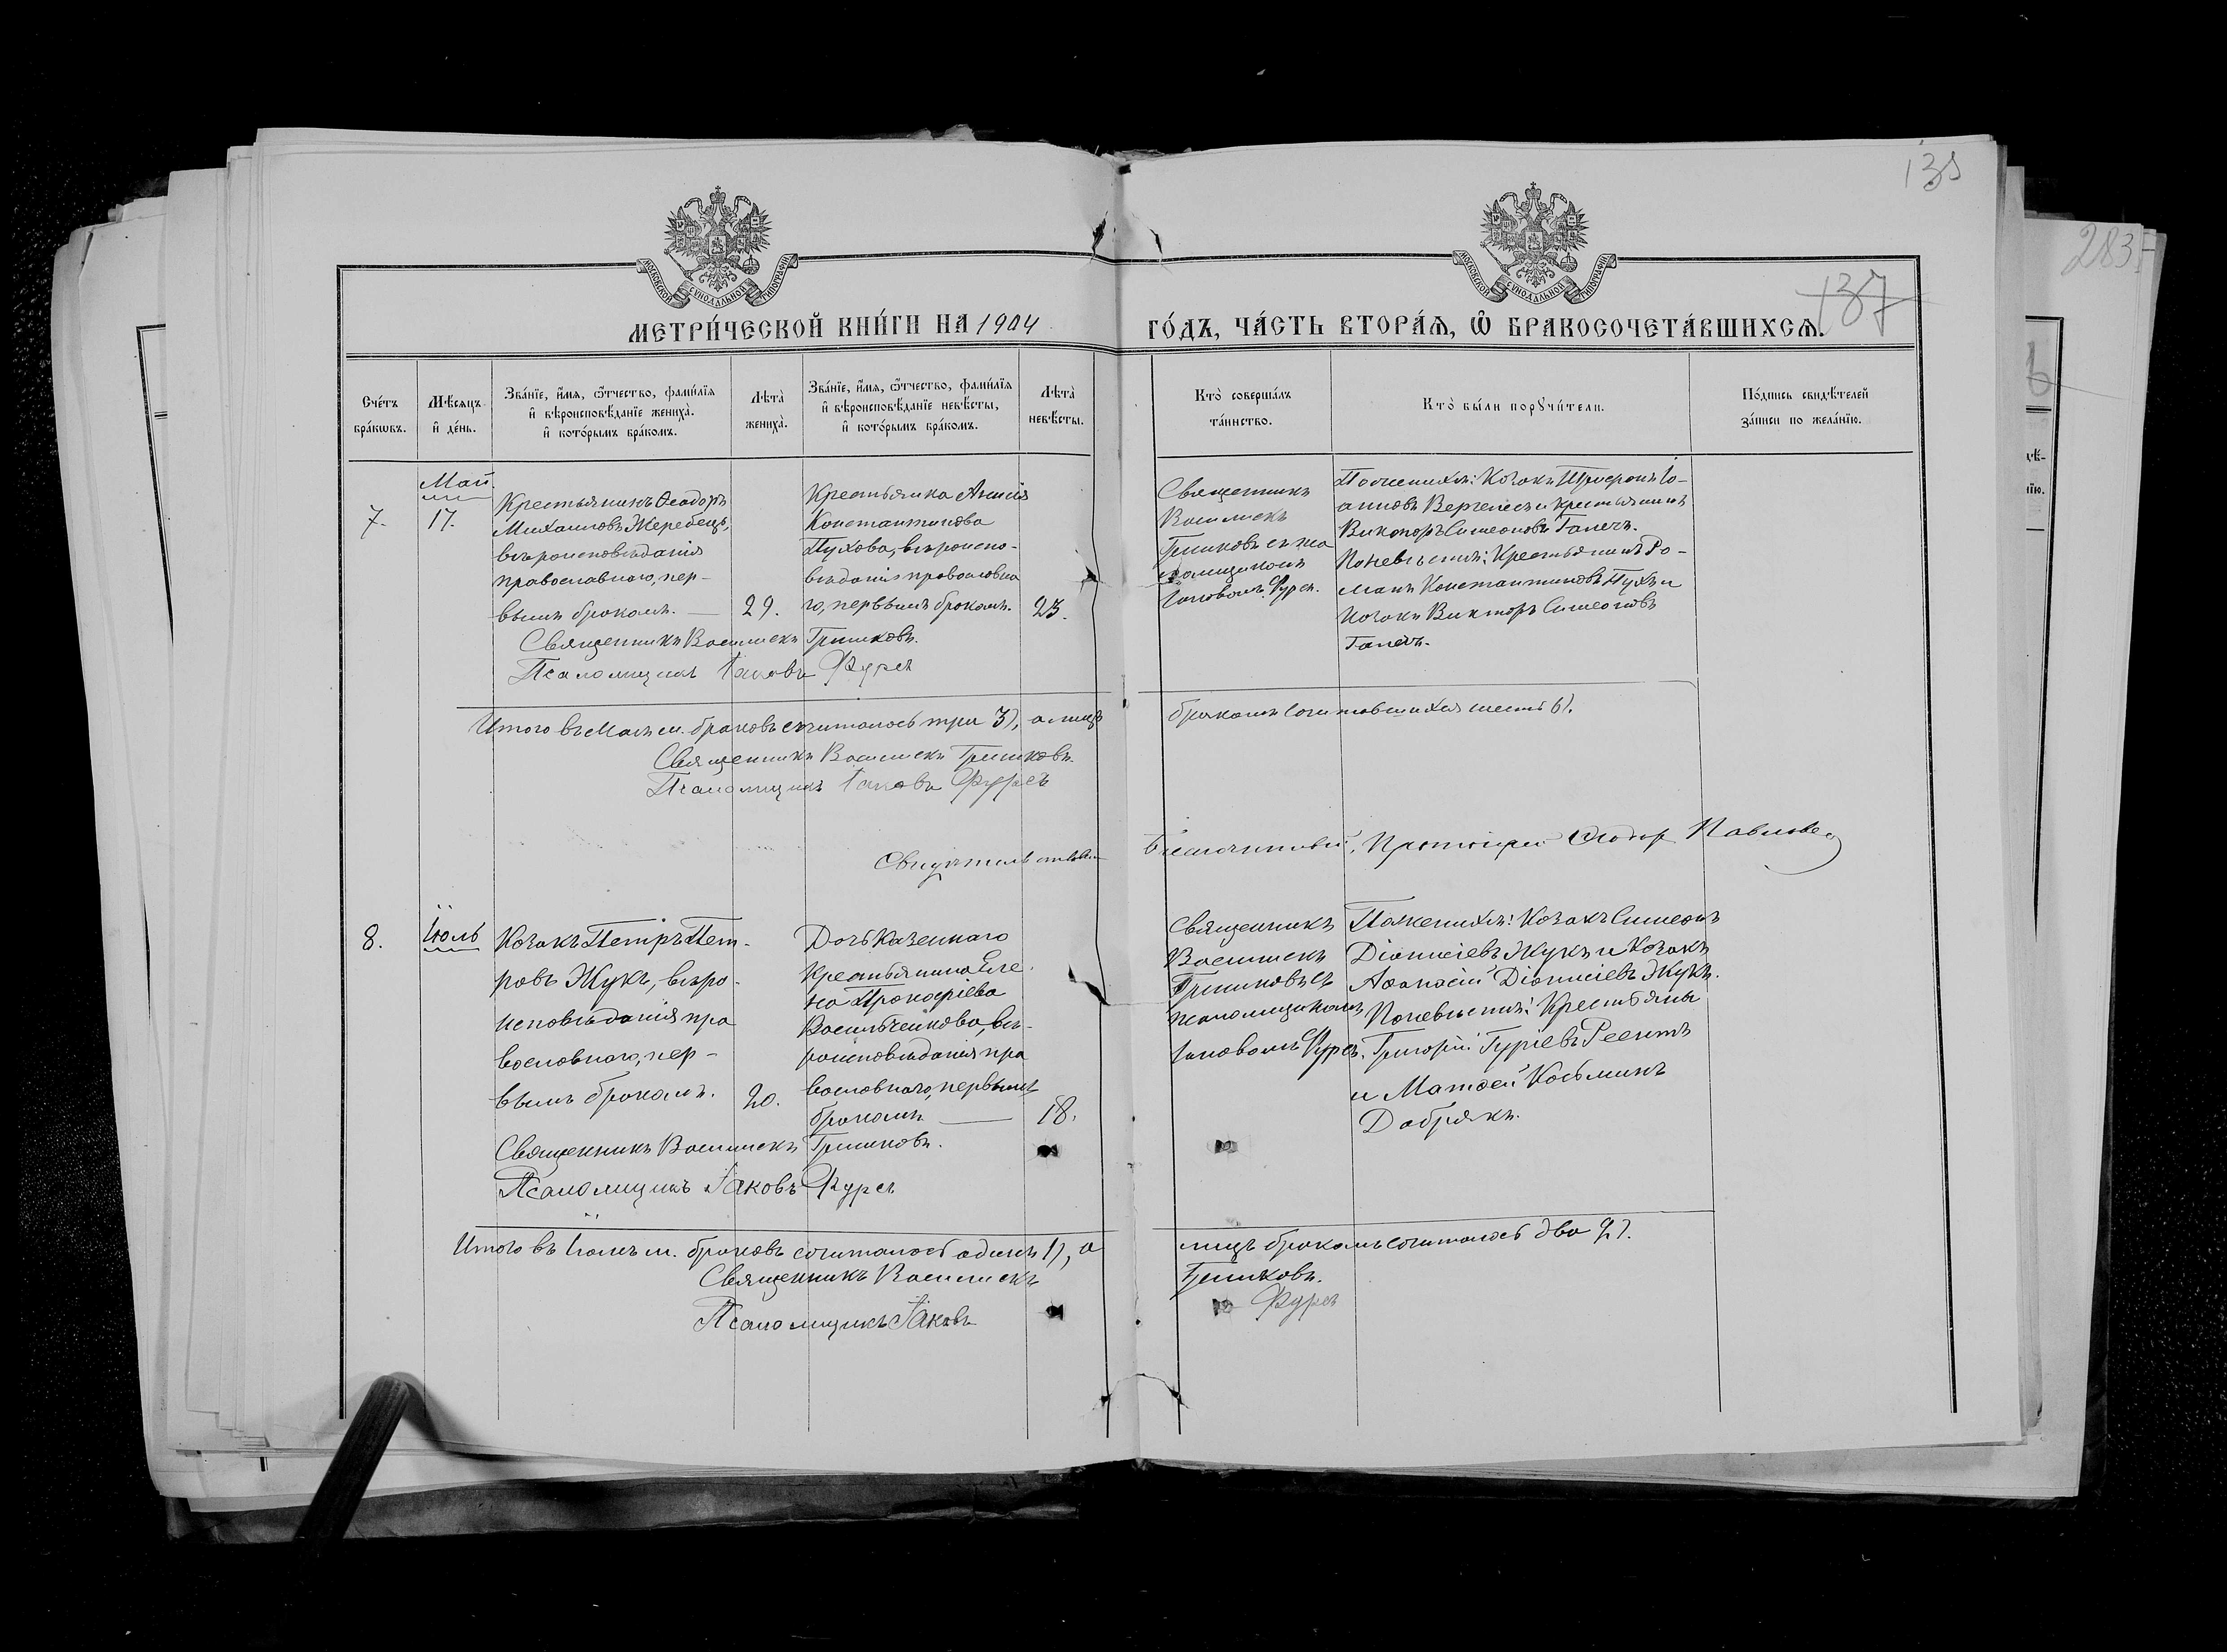 135
137
283
МОСКОВСКОЙ СУНОДАЛЬНОЙ ТИПОГРАФІИ
МОСКОВСКОЙ СУНОДАЛЬНОЙ ТИПОГРАФІИ
МЕТРИ́ЧЕСКОЙ КНИ́ГИ НА 1904 ГО́ДЪ, ЧА́СТЬ ВТОРА́Ѧ, Ѡ҆ БРАКОСОЧЕТА́ВШИХСѦ.
Сче́тъ бра́кѡвъ.
Мѣ́сѧцъ и҆ де́нь.
Зва́нїе, и҆́мѧ, ѻ҆́тчество, фами́лїѧ
и҆ вѣроисповѣ́данїе жениха̀.
и҆ кото́рымъ бра́комъ.
Лѣта̀ жениха̀.
Зва́нїе, и҆́мѧ, ѻ҆́тчество, фами́лїѧ
и҆ вѣроисповѣ́данїе невѣ́сты,
и҆ кото́рымъ бра́комъ.
Лѣта̀ невѣ́сты.
Кто̀ соверша́лъ та́инство.
Кто̀ бы́ли порꙋчи́тели.
По́дпись свидѣ́телей
за́писи по жела́нїю.
7.
Май
17.
Крестьянинъ Ѳеодоръ
Михаиловъ Жеребецъ,
вѣроисповѣданія
православнаго, пер-
вымъ бракомъ. —
29.
Крестьянка Анисія
Константинова
Пухова, вѣроиспо-
вѣданія православна
го, первымъ бракомъ.
23.
Священникъ
Василискъ
Гришковъ съ пса
ломщикомъ
Іаковомъ Фурсъ.
По женихѣ: Козакъ Трофимъ Іо-
анновъ Вергелесъ и крестьянинъ
Викторъ Симеоновъ Галичъ.
По невѣстѣ: Крестьянинъ Ро-
манъ Константиновъ Пухъ и
козакъ Викторъ Симеоновъ
Галичъ.
Священникъ Василискъ Гришковъ.
Псаломщикъ Іаковъ Фурсъ
Итого въ Маѣ м. браковъ считалось три 3), а лицъ бракомъ сочетавшихся шесть 6).
Священникъ Василискъ Гришковъ.
Псаломщикъ Іаковъ Фурсъ
Свидѣтельствовалъ Благочинный, Протоіерей Ѳеодор Павловъ
8.
Іюль
Козакъ Петръ Пет-
ровъ Жукъ, вѣро-
исповѣданія пра
вославнаго, пер-
вымъ бракомъ.
20.
Дочь казеннаго
крестьянина Еле-
на Прокофіева
Васильченкова, вѣ-
роисповѣданія пра
вославнаго, первымъ
бракомъ —
18.
Священникъ
Василискъ
Гришковъ съ
псаломщикомъ
Іаковомъ Фурсъ.
По женихѣ: Козакъ Симеонъ
Діонисіевъ Жукъ и козакъ
Аѳанасій Діонисіевъ Жукъ.
По невѣстѣ: Крестьяны
Григорій Гуріевъ Реентъ
и Матѳей Косьминъ
Добрякъ.
Священникъ Василискъ Гришковъ.
Псаломщикъ Іаковъ Фурсъ
Итого въ Іюлѣ м. браковъ считалось одинъ 1), а лицъ бракомъ считалось два 2).
Священникъ Василискъ Гришковъ.
Псаломщикъ Іаковъ Фурсъ